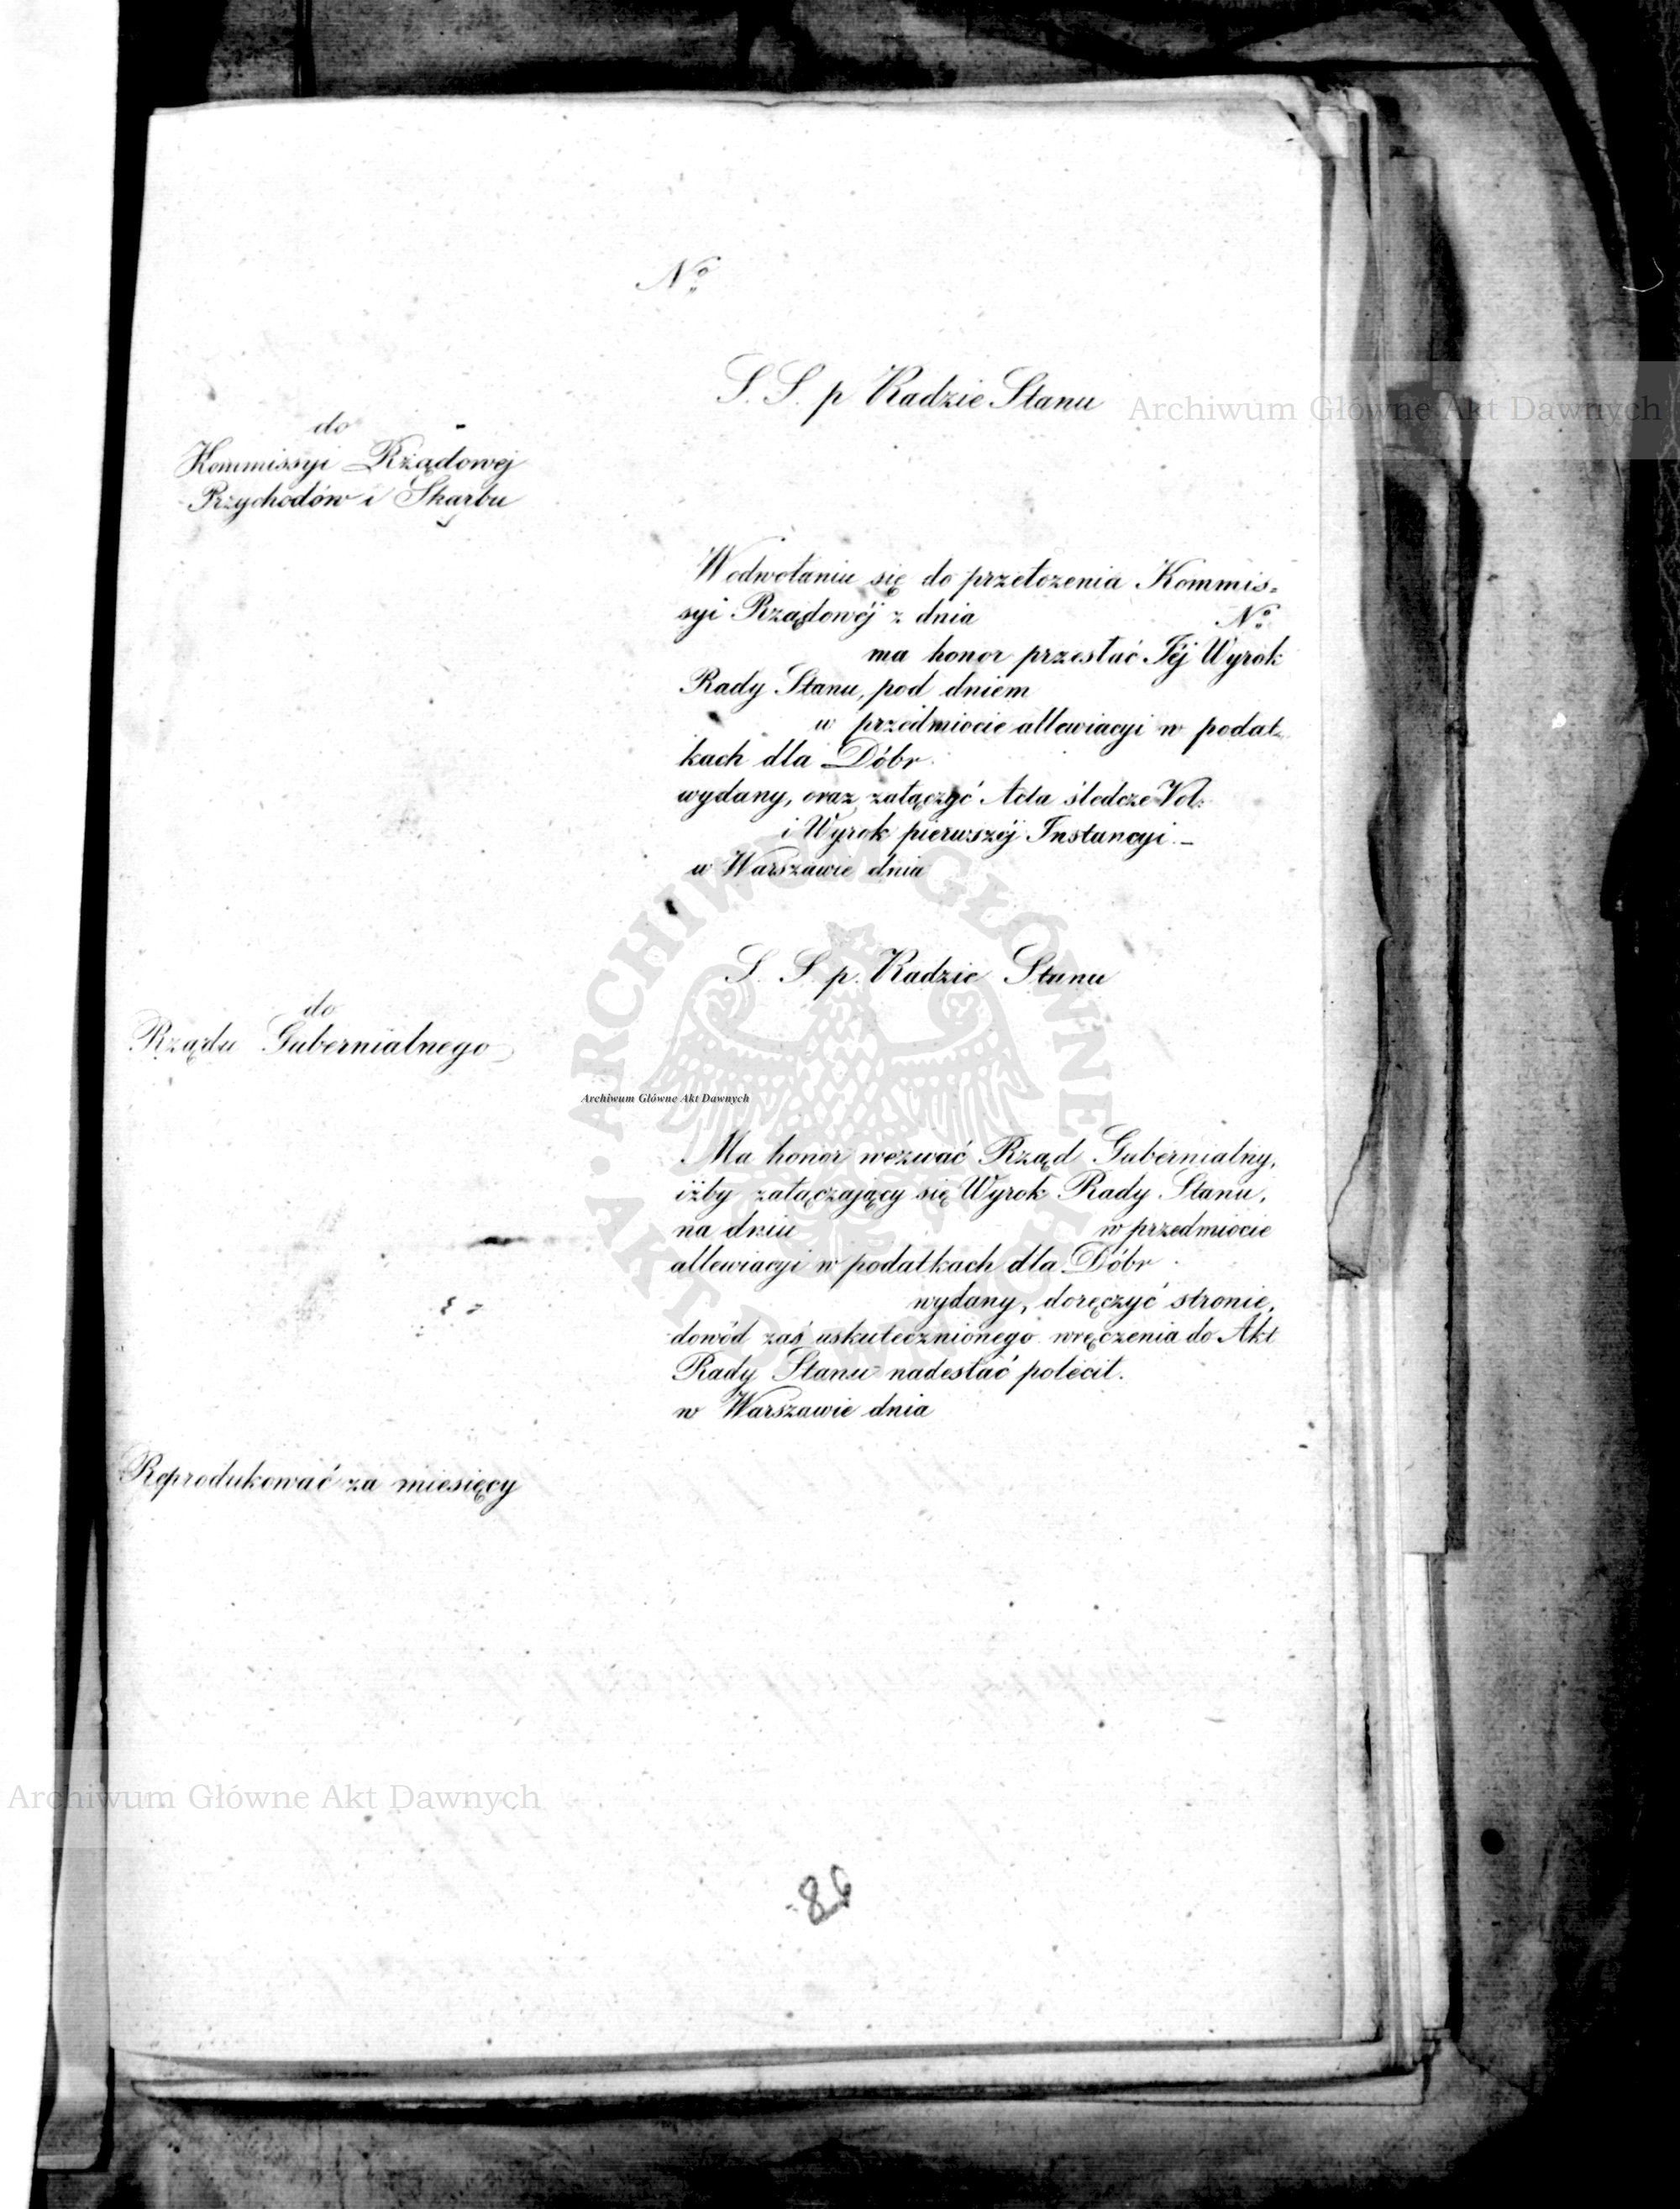 Nº
S. S. p Radzie Stanu
do
Kommissyi Rządowej
Przychodów i Skarbu
W odwołaniu się do przełozenia Kommis=
syi Rządowéj z dnia Nº
ma honor przesłać Jéj Wyrok
Rady Stanu, pod dniem
w przedmiocie allewiacyi w podat=
kach dla Dóbr
wydany, oraz załączyć Acta śledcze Vol:
i Wyrok pierwszéj Instancyi. –
w Warszawie dnia
S. S. p. Radzie Stanu
do
Rządu Gubernialnego
Ma honor wezwać Rząd Gubernialny,
iżby załączający się Wyrok Rady Stanu,
na dniu w przedmiocie
allewiacyi w podatkach dla Dóbr
wydany, doręczyć stronie,
dowód zaś uskutecznionego wręczenia do Akt
Rady Stanu nadesłać polecił.
w Warszawie dnia
Reprodukować za miesięcy
86
Archiwum Główne Akt Dawnych
Archiwum Główne Akt Dawnych
Archiwum Główne Akt Dawnych